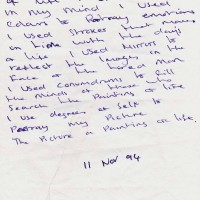 of
In my mind I used
Colours to Portray emotions
I Used Strokes that moves
in time with the days
of life I Used Mirrors to
reflect the images on the
Face of the
Man
I Used Conundrums to fill
the minds of those who
Search the Painting of life
I use degrees of Self to
Portray my Picture
The Picture a Painting of life.
11 Nov 94